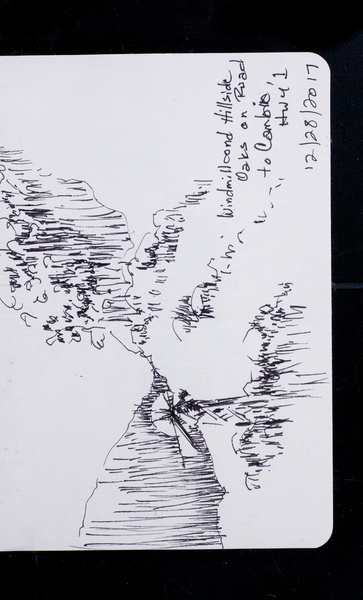 Windmill and Hillside
Oaks on Road
to Cambria,
Hwy 1
12/28/2017